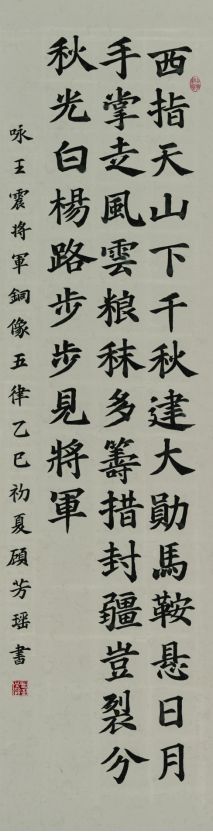 西指天山下千秋建大勛馬鞍懸日月
手掌走風雲粮秣多籌措封疆豈裂分
秋光白楊路步步見將軍
咏王震將軍銅像五律乙巳初夏顧芳瑶書